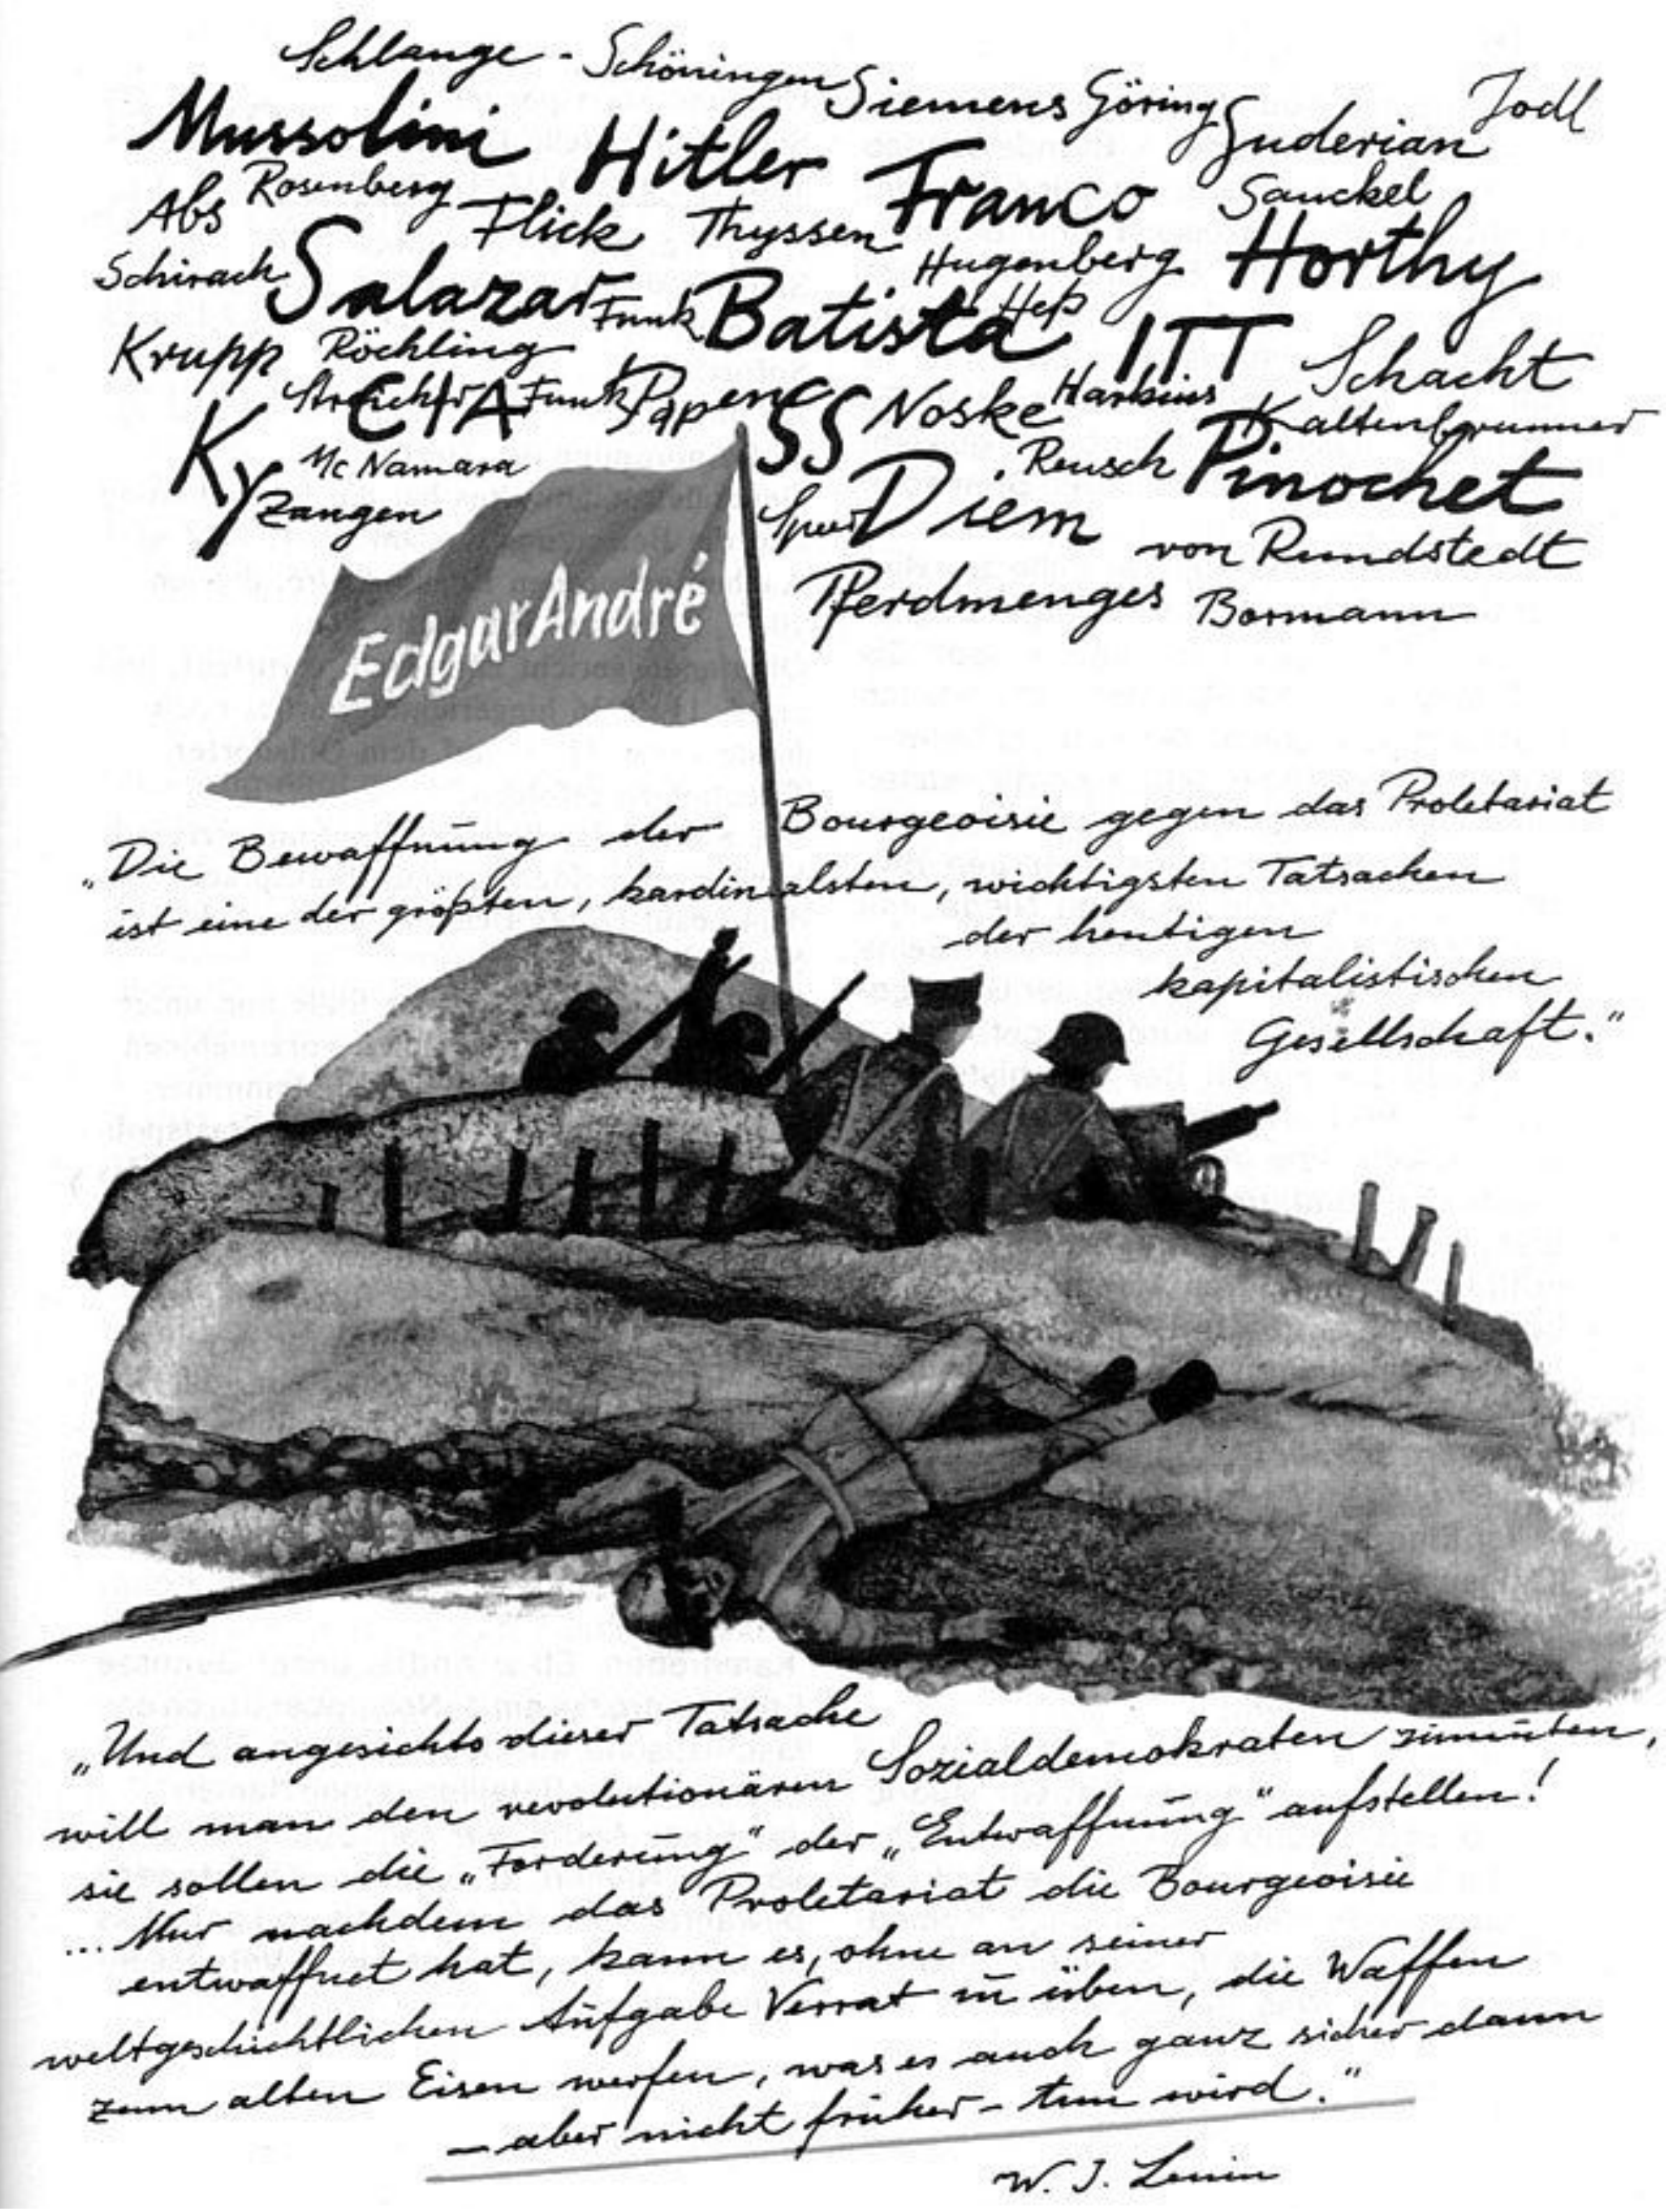 Schlange - Schöningen Siemens Göring Guderian Jodl
Mussolini Hitler Franco Sauckel
Abs Rosenberg Flick Thyssen Hugenberg Horthy
Schirach Salazar Funk Batista Heß ITT
Krupp Röchling Schacht
Streicher CIA Funk Papen SS Noske Harkins Kaltenbrunner
Ky Mc Namara Reusch Pinochet
Zangen Speer Diem von Rundstedt
Pferdmenges Bormann
Edgar André
„Die Bewaffnung der Bourgeoisie gegen das Proletariat
ist eine der größten, kardinalsten, wichtigsten Tatsachen
der heutigen
kapitalistischen
Gesellschaft.“
„Und angesichts dieser Tatsache
will man den revolutionären Sozialdemokraten zumuten,
sie sollen die „Forderung“ der „Entwaffnung“ aufstellen!
... Nur nachdem das Proletariat die Bourgeoisie
entwaffnet hat, kann es, ohne an seiner
weltgeschichtlichen Aufgabe Verrat zu üben, die Waffen
zum alten Eisen werfen, was es auch ganz sicher dann
– aber nicht früher – tun wird.“
W. J. Lenin